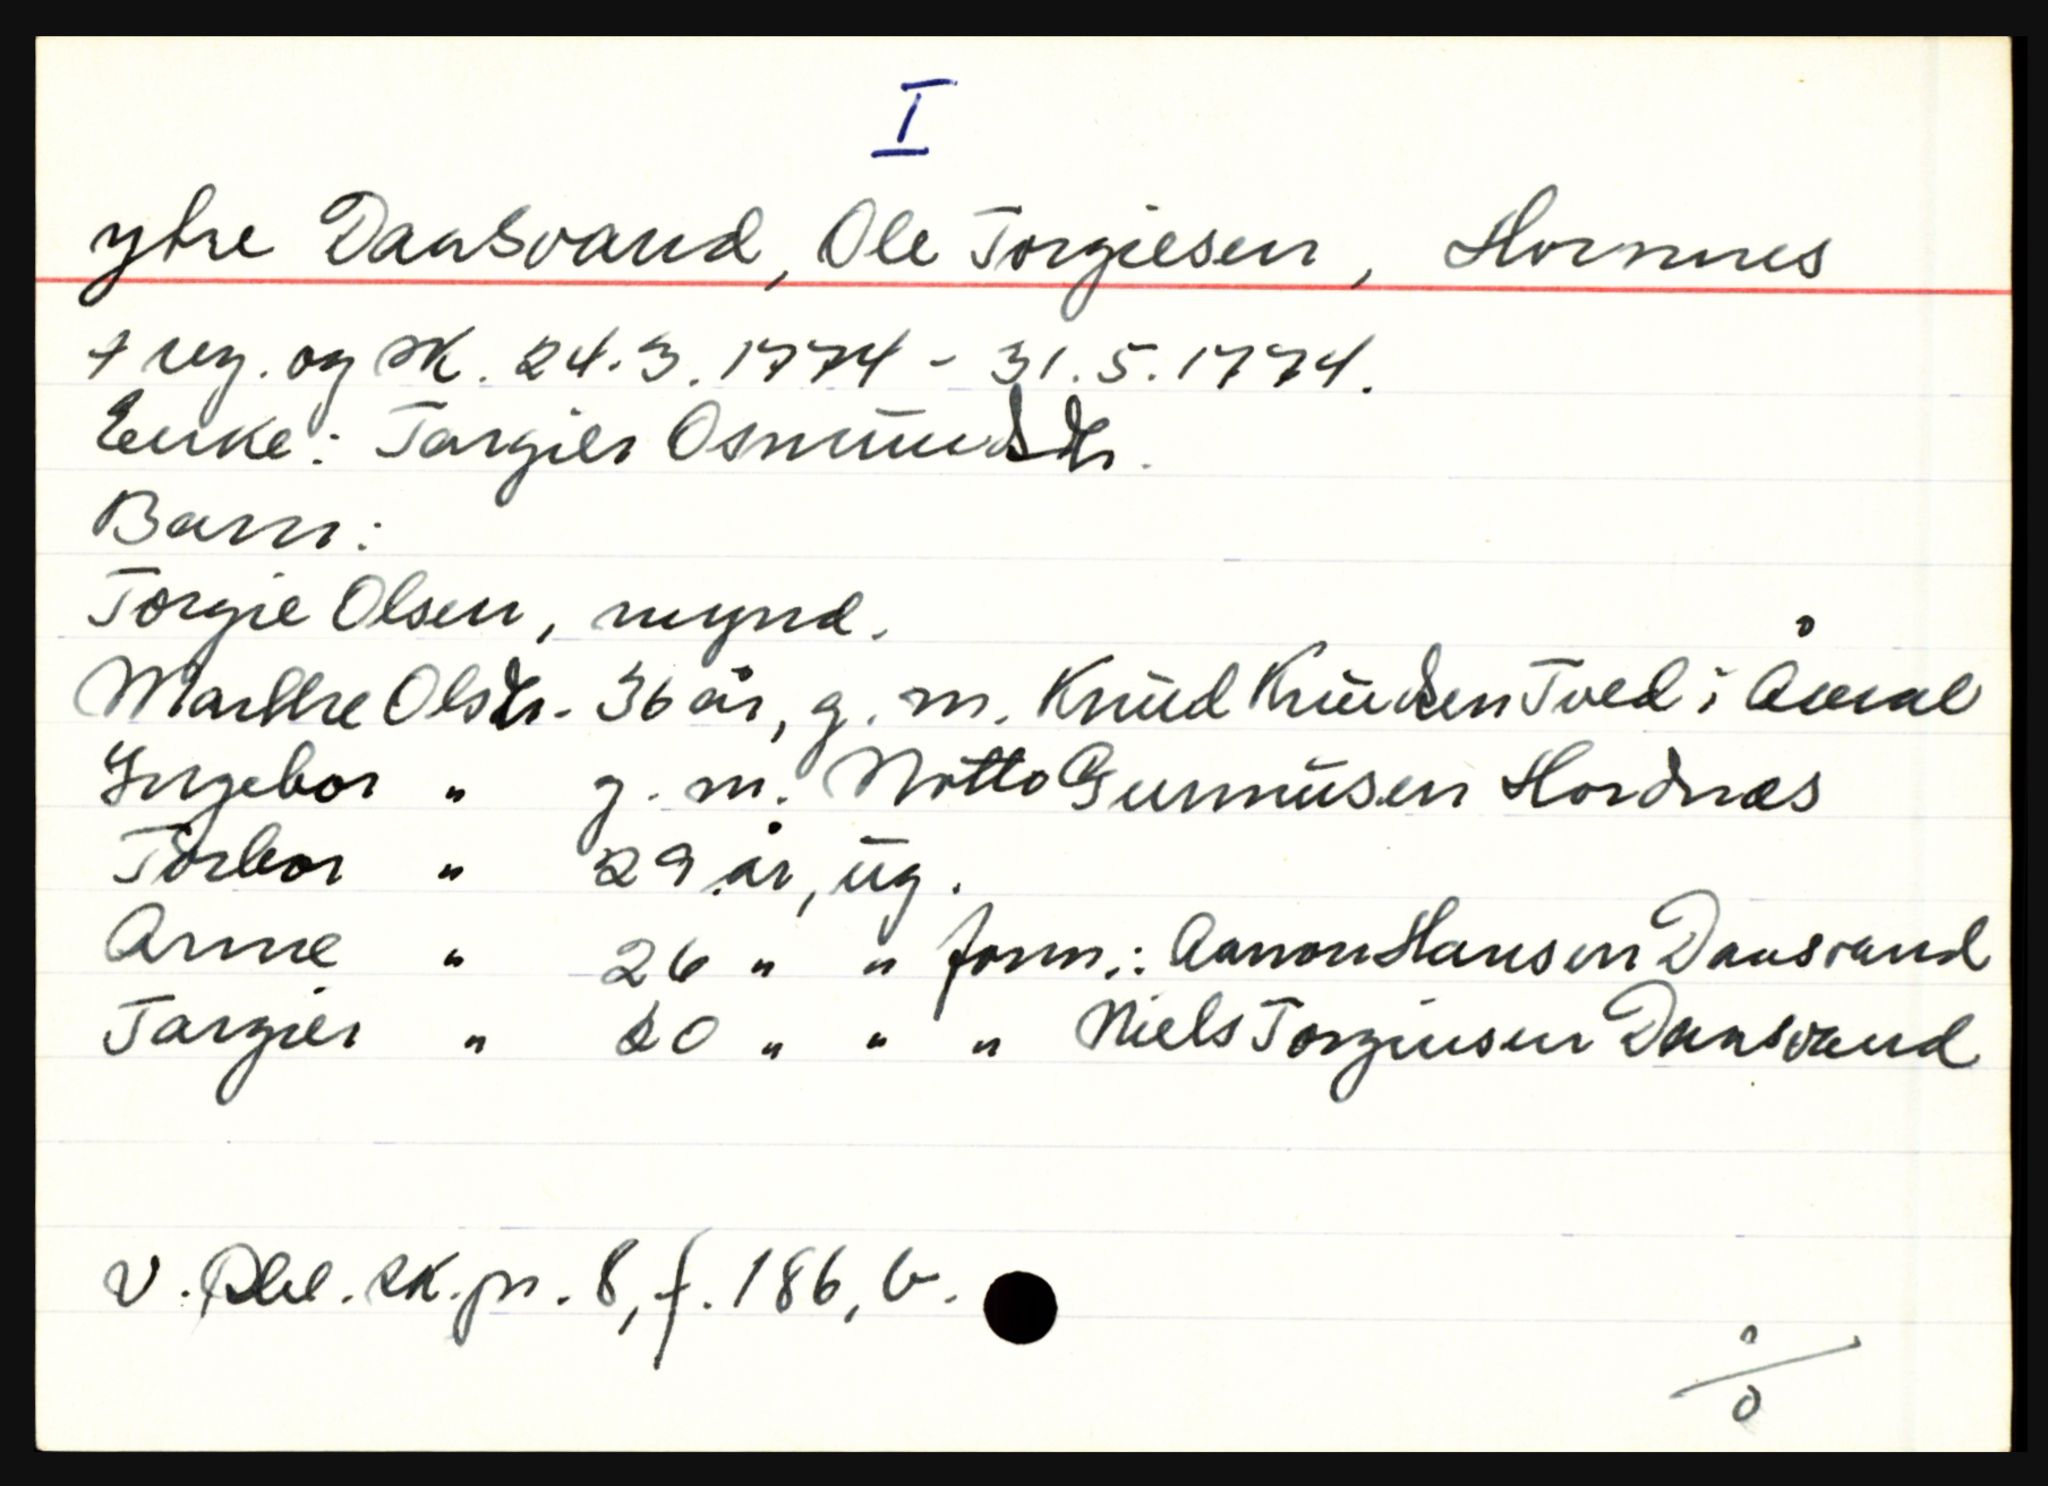 I
ytre Daasvand, Ole Torgiesen, Hornnes
+ reg. og sk. 24.3.1774 - 31.5.1774.
Enke: Targier Osmundsdtr.
Barn:
Torgie Olsen, mynd.
Marthe Olsdtr. 36 år, g. m. Knud Knudsen Tved i Åseral
Ingebor " g. m. Notto Gunnusen Hordnæs
Torbor " 29 år, ug.
Anne " 26 " " form.: Aanon Hansen Daasvand
Targier " 20 " " " Niels Torginsen Daasvand
v. Rbl. sk. pr. 8, f. 186, b.